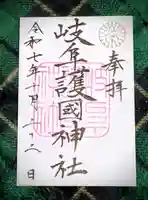 奉拝
岐阜護國神社
令和七年十月十二日